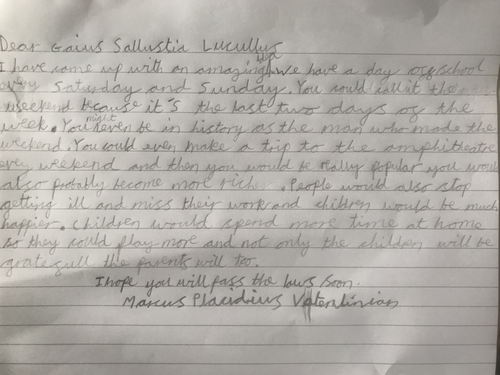 Dear Gaius Sallustia Lucullus
I have come up with an amazing idea We have a day off school
every Saturday and Sunday. You could call it the
weekend because it's the last two days of the
week. You might even be in history as the man who made the
weekend. You could even make a trip to the amphitheatre
every weekend and then you would be really popular you would
also probably become more richer. People would also stop
getting ill and miss their work and children would be much
happier. Children would spend more time at home
so they could play more and not only the children will be
gratefull the parents will too.
I hope you will pass the laws soon.
Marcus Placidius Valentinian